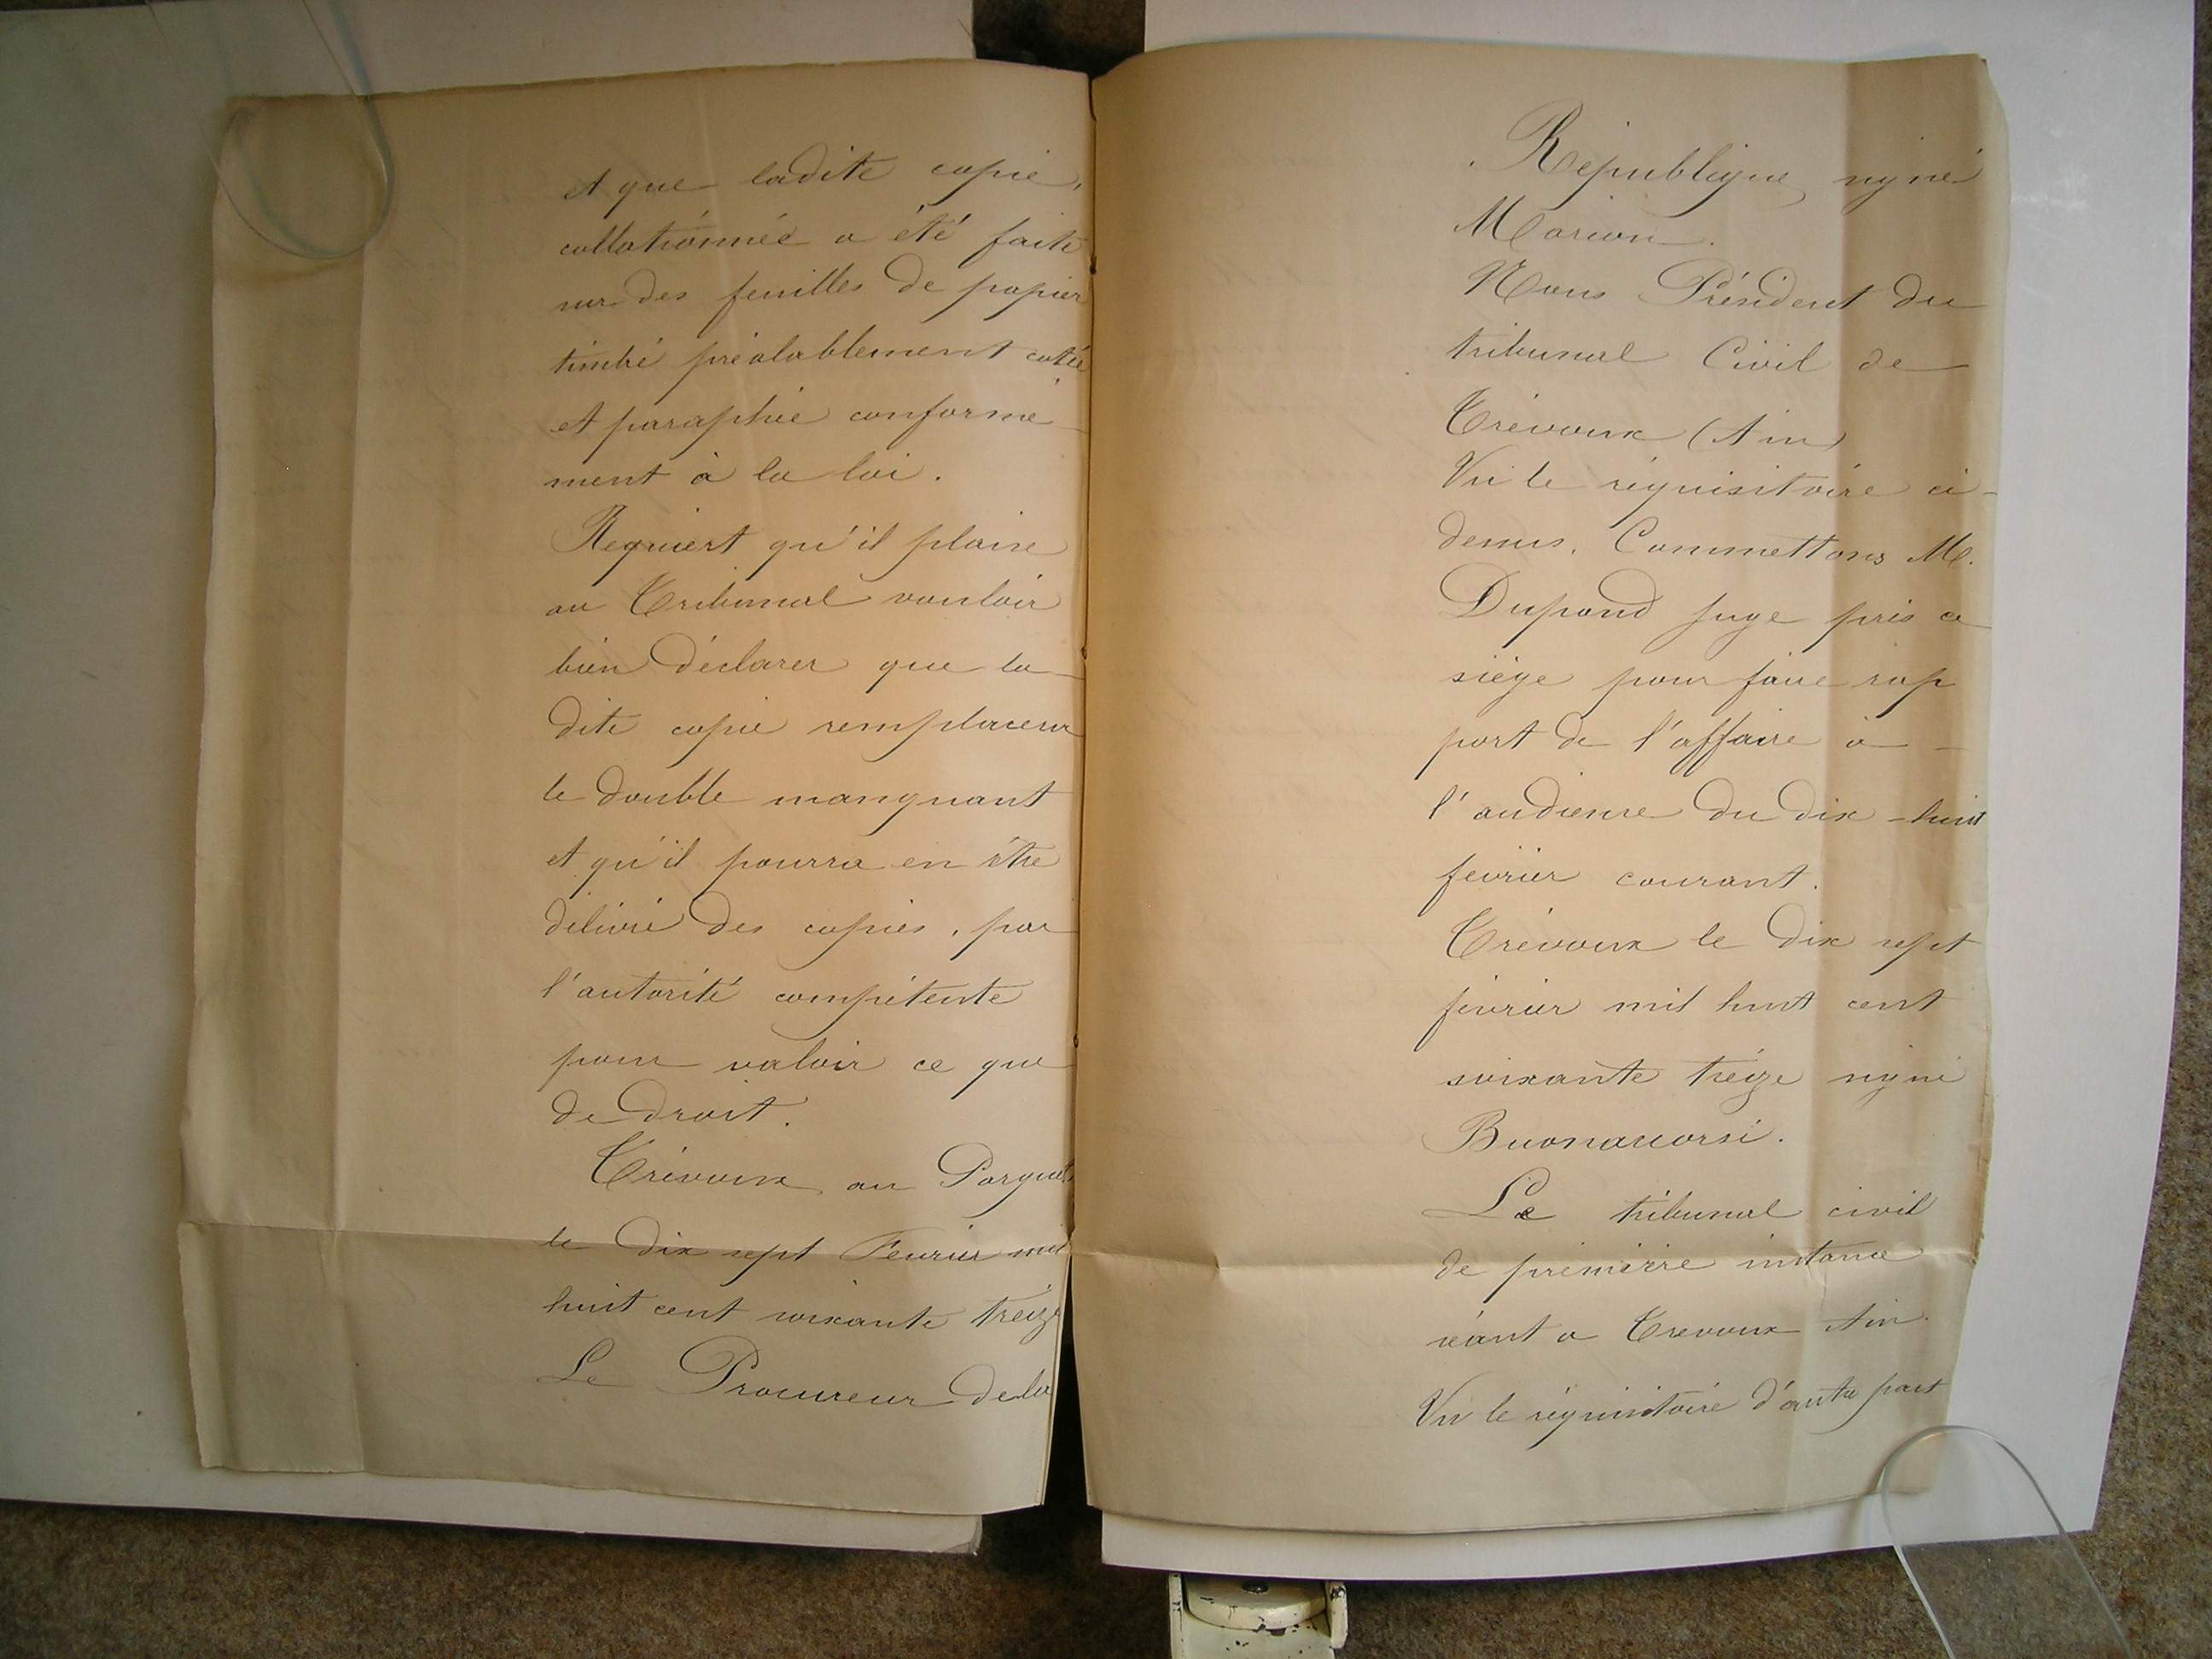 et que ladite copie,
collationnée a été faite
sur des feuilles de papier
timbré préalablement coté
et paraphié conformé
ment à la loi.
Requiert qu'il plaise
au Tribunal vouloir
bien déclarer que la
dite copie remplacera
le double manquant
et qu'il pourra en être
délivré des copies, par
l'autorité compétente
pour valoir ce que
de droit.
Trévoux au Parquet
le dix sept Février mil
huit cent soixante treize
Le Procureur de la
République signé
Marion.
Nous Président du
tribunal Civil de
Trévoux (Ain)
Vu le réquisitoire ci-
dessus, Commettons M.
Dupond Juge près ce
siège pour faire rap
port de l'affaire à -
l'audience du dix-huit
février courant.
Trévoux le dix sept
février mil huit cent
soixante treize signé
Buonaccorsi.
Le tribunal civil
de première instance
séant a Trevoux Ain.
Vu le réquisitoire d'autre part